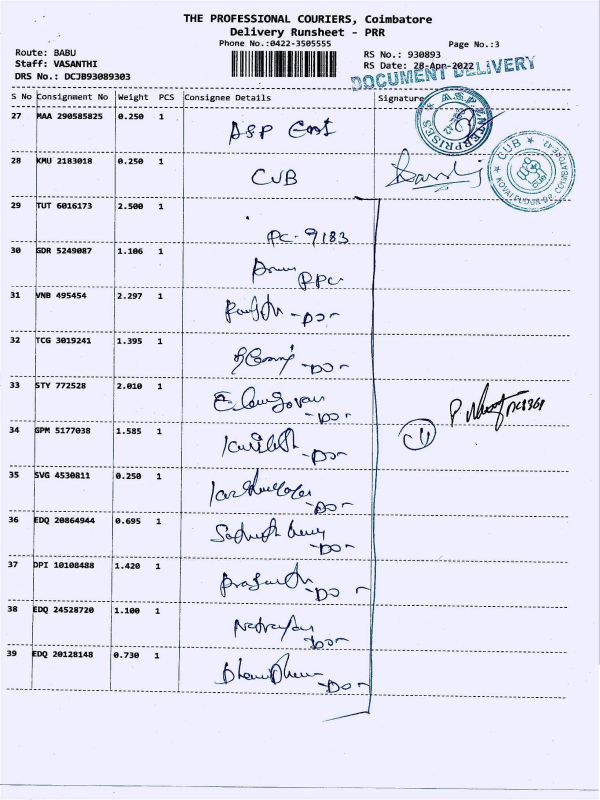 THE PROFESSIONAL COURIERS, Coimbatore
Delivery Runsheet - PRR
Phone No.:0422-3505555
Page No.:3
Route: BABU
RS No.: 930893
Staff: VASANTHI
RS Date: 28-Apr-2022
DRS No.: DCJB93089303
DOCUMENT DELIVERY
S No Consignment No Weight PCS Consignee Details Signature
27 MAA 290585825 0.250 1
ASP
A.S.P ENTERPRISES
28 KMU 2183018 0.250 1 CUB
CUB
29 TUT 6016173 2.500 1
PC-9183
30 GDR 5249087 1.106 1
31 VNB 495454 2.297 1
-DO-
32 TCG 3019241 1.395 1
-DO-
33 STY 772528 2.010 1
Elangovan
-DO-
34 GPM 5177038 1.585 1
-DO-
11
35 SVG 4530811 0.250 1
-DO-
36 EDQ 20864944 0.695 1
-DO-
37 DPI 10108488 1.420 1
Prasanth
-DO-
38 EDQ 24528720 1.100 1
-DO-
39 EDQ 20128148 0.730 1
-DO-